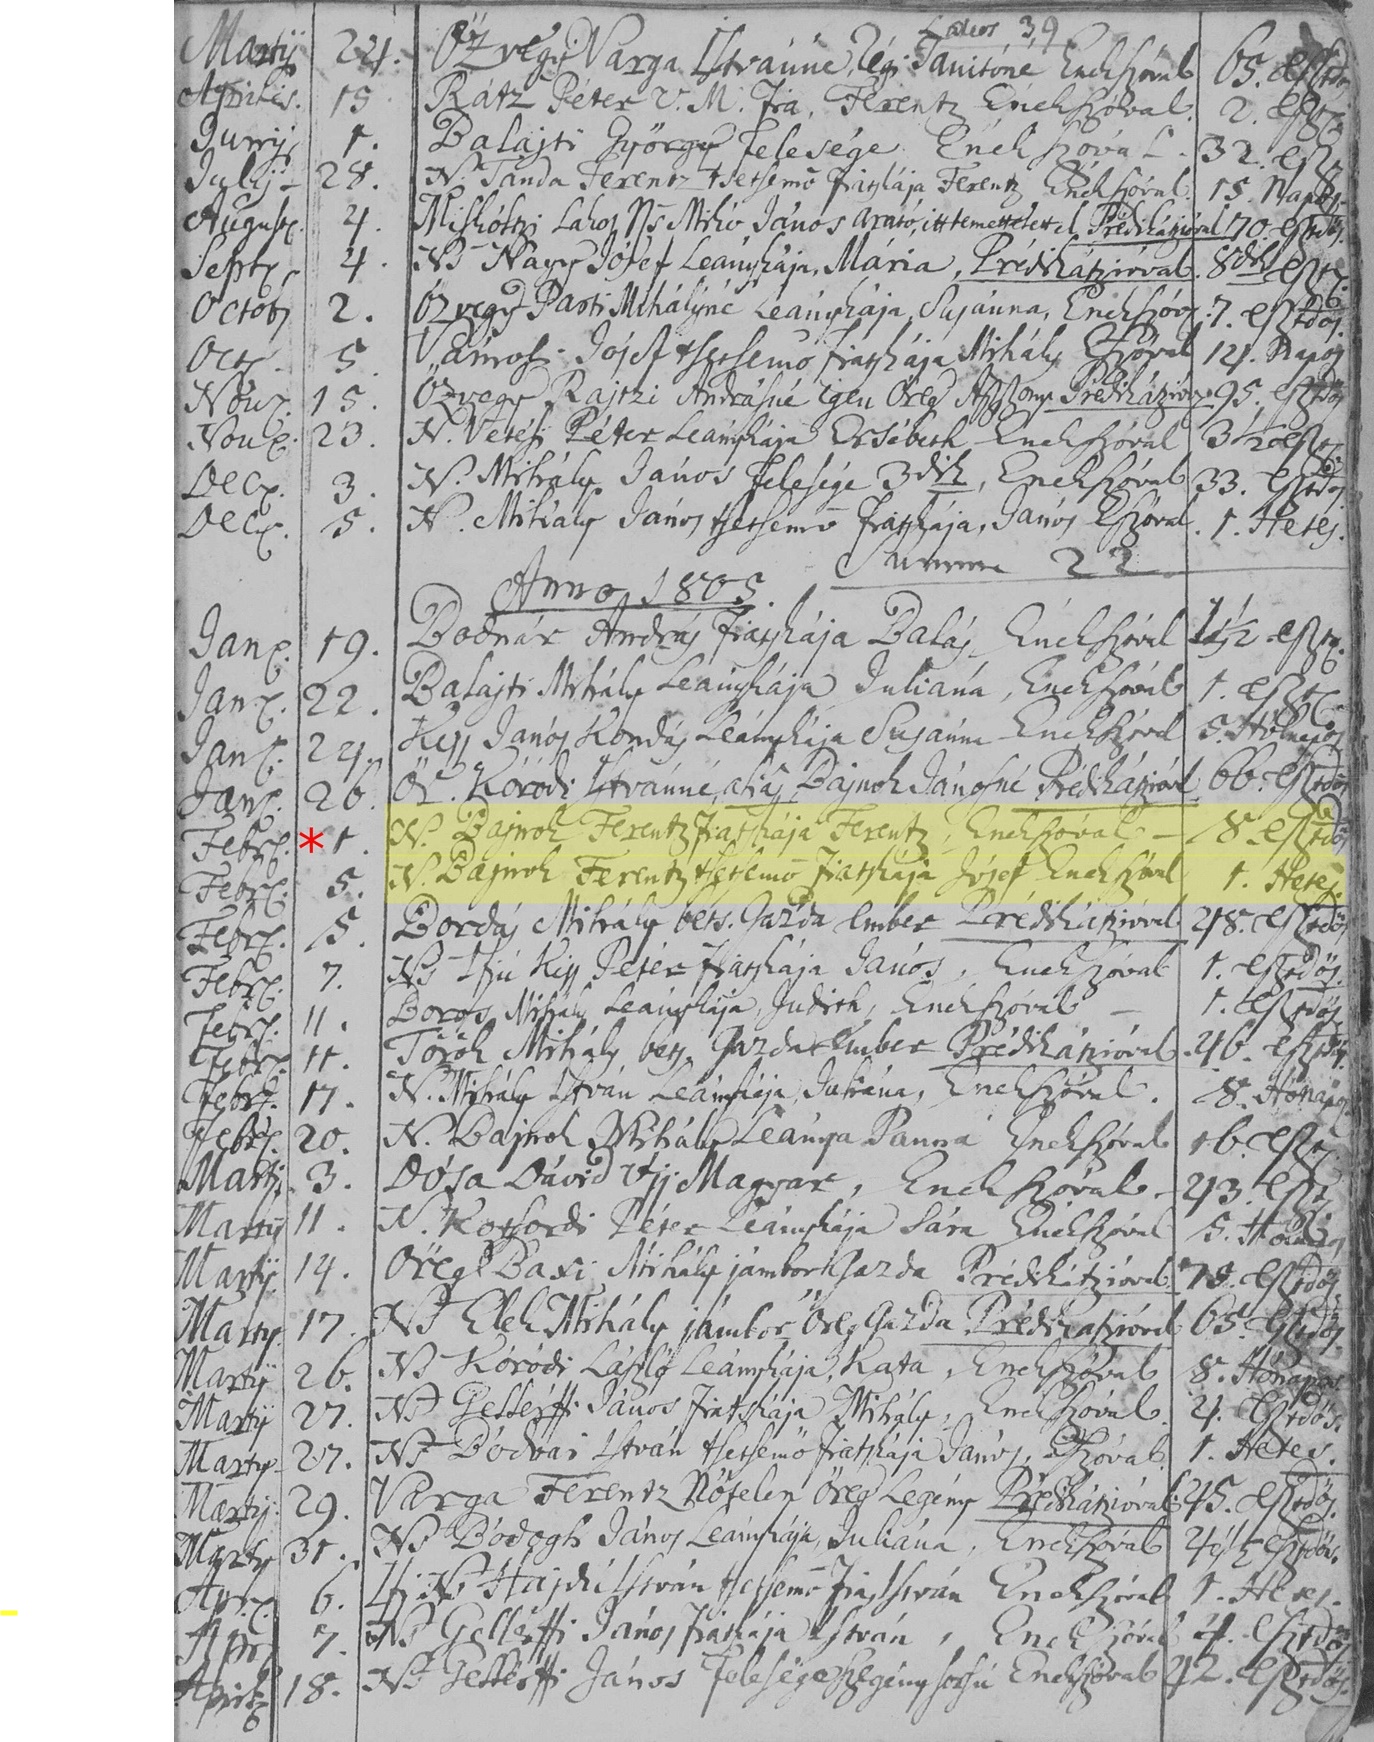 Lakos 39
Martij 24. Özvegy Varga Istvánné, régi Tanitóné Énekszóval 65. Esztdős
Aprilis. 15 Rátz Péter V. M. fia, Ferentz Énekszóval. 2. Eszt.
Junij 1. Balajti György felesége Énekszóval 32. Eszt.
Julij 28. N. Tanda Ferentz tsetsemő fiatskája Ferentz Énekszóval 15. Napos.
August. 4. Miskoltzi Lakos Ns Mikó János arató, itt temettetett el, Prédikátzióval 70. Esztdős.
Sept. 4. Ns Nagy Jósef Leánykája, Mária, Prédikátzióval. 8dik Eszt.
Octob. 2. Özvegy Parti Mihályné Leánykája, Susánna, Énekszóv. 7. Esztdős.
Oct. 5. Vámos Jósef tsetsemő fiatskája Mihály Eszóval 14. Napos
Nov. 15. Özvegy Rajtzi Andrásné igen Öreg Aszszony Prédikátzióv. 95. Esztdős
Nov. 23. N. Vetési Péter Leánykája Ersébeth Énekszóval 3 1/2 Eszt.
Dec. 3. N. Mihály János felesége 3dik, Énekszóval 33. Esztdős
Dec. 5. N. Mihály János tsetsemő fiatskája, János Eszóval. 1. Hetes.
Summa 22
Anno 1805.
Jan. 19. Bodnár András fiatskája Balás Énekszóval 1 1/2 Eszt.
Jan. 22. Balajti Mihály Leánykája Juliána, Énekszóval 1. Eszt.
Jan. 24. Kiss János Kondás Leánykája Susánna Énekszóval 5. Hólnapos
Jan. 26. Öz. Kóródi Istvánné, aliás Bajnok Jánosné Prédikátzióval 66. Esztdős
Febr. * 1. N. Bajnok Ferentz fiatskája Ferentz, Énekszóval – 8. Esztdős
Febr. 5. N. Bajnok Ferentz tsetsemő fiatskája Jósef Énekszóval 1. Hetes.
Febr. 5. Bordás Mihály bets. Gazda Ember Prédikátzióval 48. Esztdős
Febr. 7. Ns Ifjú Kiss Péter fiatskája János, Énekszóval 1. Esztdős.
Febr. 11. Boros Mihály Leánykája, Judith, Énekszóval – 1. Esztdős
Febr. 11. Török Mihály bets. Gazda Ember Prédikátzióval. 46. Esztdős.
Febr. 17. N. Mihály István Leánykája, Juliána, Énekszóval. 8. Hónapos
Febr. 20. N. Bajnok Mihály Leánya Panna Énekszóval 16. Eszt.
Martij 3. Dósa Dávid Ujj Magyar, Énekszóval. 43. Eszt.
Martij 11. N. Kotsordi Péter Leánykája Sára Énekszóval 5. Hólnapos
Martij. 14. Öreg Baxi Mihály jámbor Gazda Prédikátzióval. 78. Esztdős.
Martij 17. Ns Elek Mihály jámbor Öreg Gazda Prédikátzióval 65. Esztdős.
Martij 26. Ns Kóródi László Leánykája, Kata, Énekszóval 8. Hónapos
Martij 27. Ns Gellérffi János fiatskája Mihály, Énekszóval. 4. Esztdős.
Martij 27. Ns Bódvai István tsetsemő fiatskája János, Eszóval. 1. Hetes.
Martij. 29. Varga Ferentz Nőtelen Öreg Legény Prédikátzióval 45. Esztdős.
Martij 31. Ns Bódogh János Leánykája, Juliána, Énekszóval 4 1/2 Esztdős.
Apr. 6. Ifj. Ns Hajdú István tsetsemő fia, István Énekszóval 1. Hetes.
Apr. 7. Ns Gellérffi János fiatskája István, Énekszóval 4. Esztdős
Aprilis 18. Ns Gellérffi János felesége szegény sorsú Énekszóval 42. Esztdős.